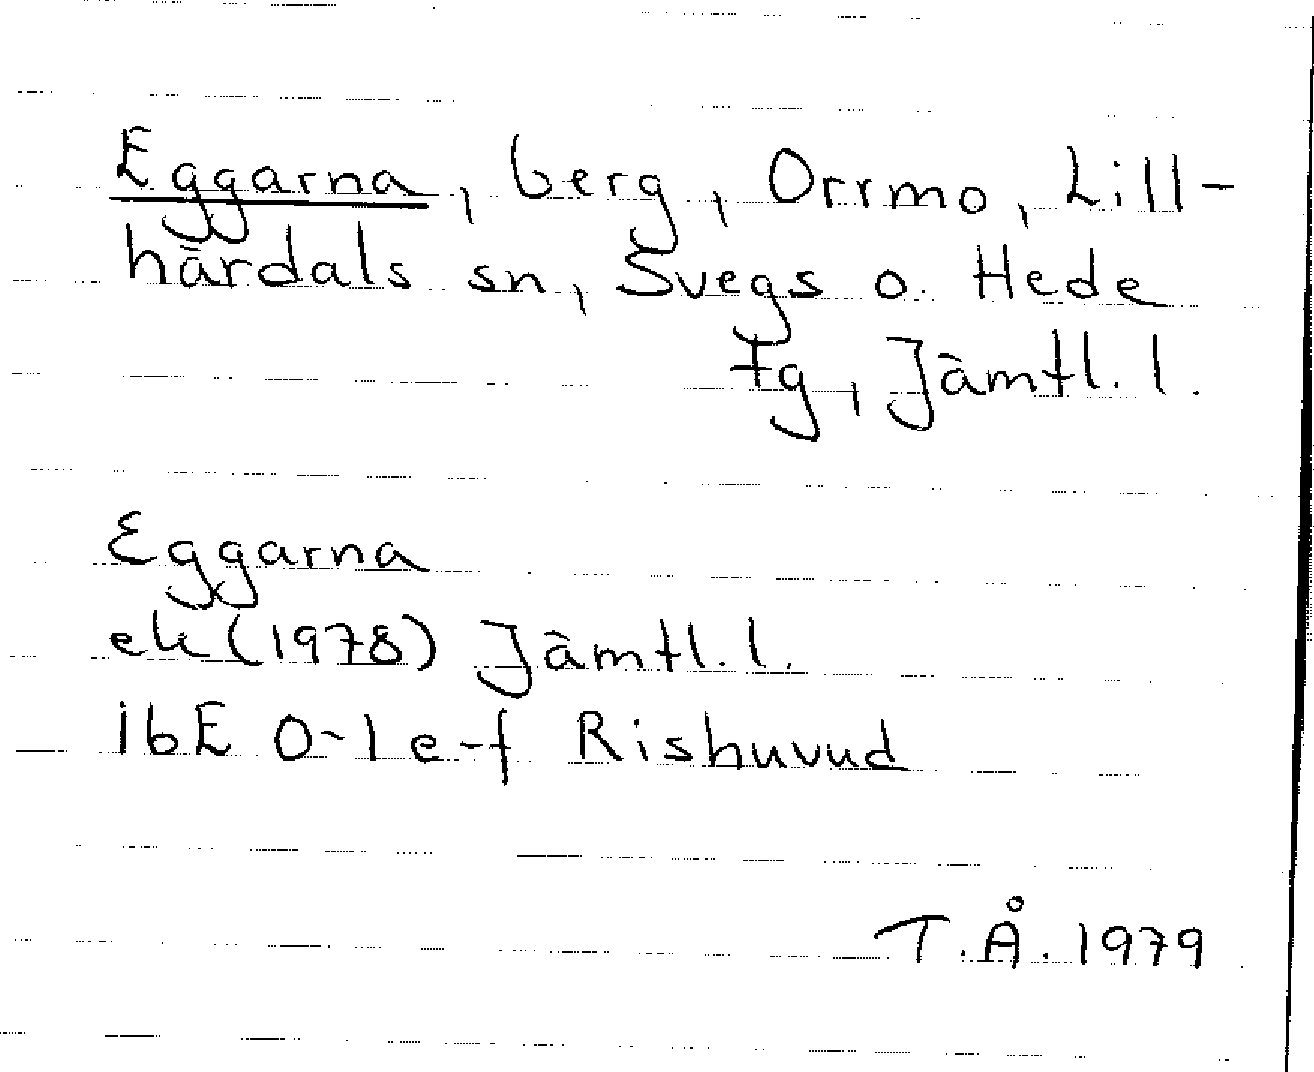 Eggarna, berg, Orrmo, Lill-
härdals sn, Svegs o. Hede
tg, Jämtl. l.
Eggarna
ek (1978) Jämtl. l.
16E 0-1 e-f Rishuvud
T.Å. 1979